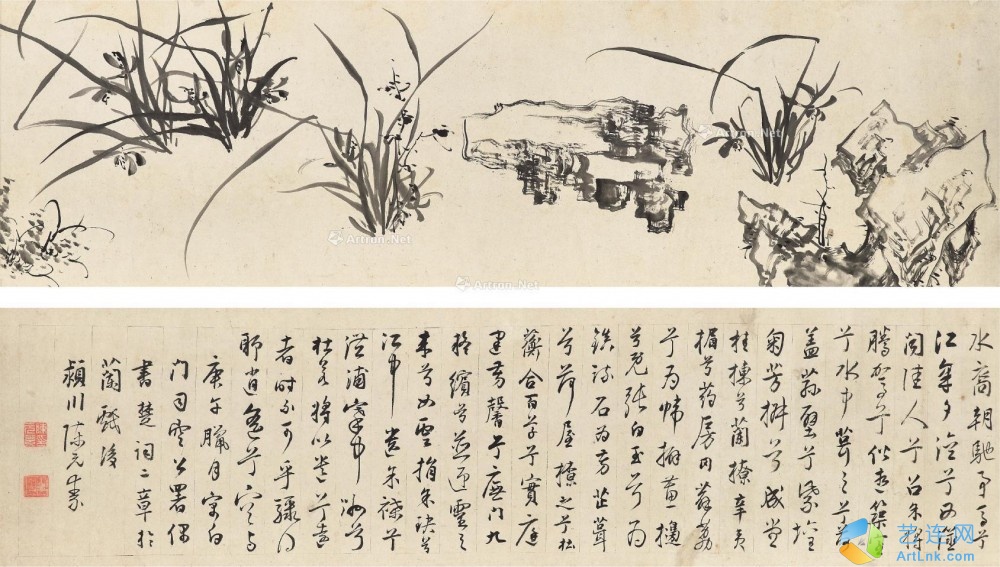 水裔朝馳予馬兮
江皋夕濟兮西澨
聞佳人兮召予將
騰駕兮偕逝築室
兮水中葺之兮荷
蓋蓀壁兮紫壇
匊芳椒兮成堂
桂棟兮蘭橑辛夷
楣兮葯房罔薜荔
兮為帷擗蕙櫋
兮既張白玉兮為
鎮疏石為芳芷葺
兮荷屋繚之兮杜
蘅合百草兮實庭
建芳馨兮廡門九
嶷繽兮並迎靈之
來兮如雲捐余玦兮
江中遺余褋兮
澧浦搴中洲兮
杜若將以遺兮遠
者時不可乎驟得
聊逍遙兮容與
庚午臘月寓白
門司空公署偶
書楚詞二章於
蘭後
潁川陳元素
Artron.Net
Artron.Net
Artron.Net
艺连网
ArtLnk.com